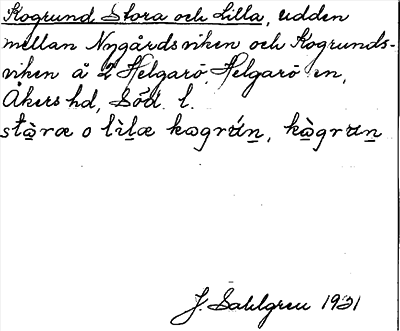 Kogrund Stora och Lilla, udden
mellan Nygårdsviken och Kogrunds-
viken å 2 Helgarö, Helgarö sn,
Åkers hd, Söd. l.
stɷ̀ræ o lìlæ kɷgrún, kɷ̀grun
J. Sahlgren 1931